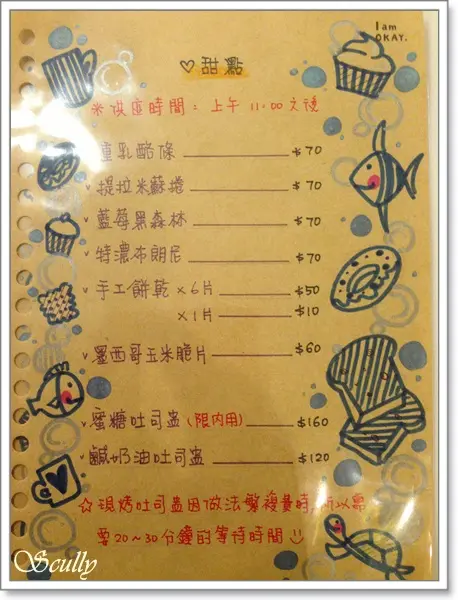 I am
OKAY.
♡甜點
※供應時間：上午 11:00 之後
重乳酪條 $70
v 提拉米蘇捲 $70
v 藍莓黑森林 $70
v 特濃布朗尼 $70
v 手工餅乾 ×6片 $50
×1片 $10
v 墨西哥玉米脆片 $60
v 蜜糖吐司盅 (限內用) $160
v 鹹奶油吐司盅 $120
☆現烤吐司盅因做法繁複費時,所以需
要20~30分鐘的等待時間
Scully